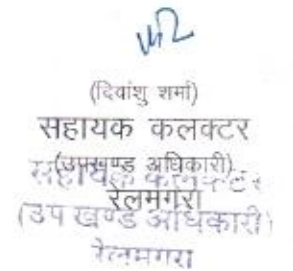 (दिवांशु शर्मा)
सहायक कलक्टर
(उपखण्ड अधिकारी)
रेलमगरा
सहायक कलक्टर
(उप खण्ड अधिकारी)
रेलमगरा